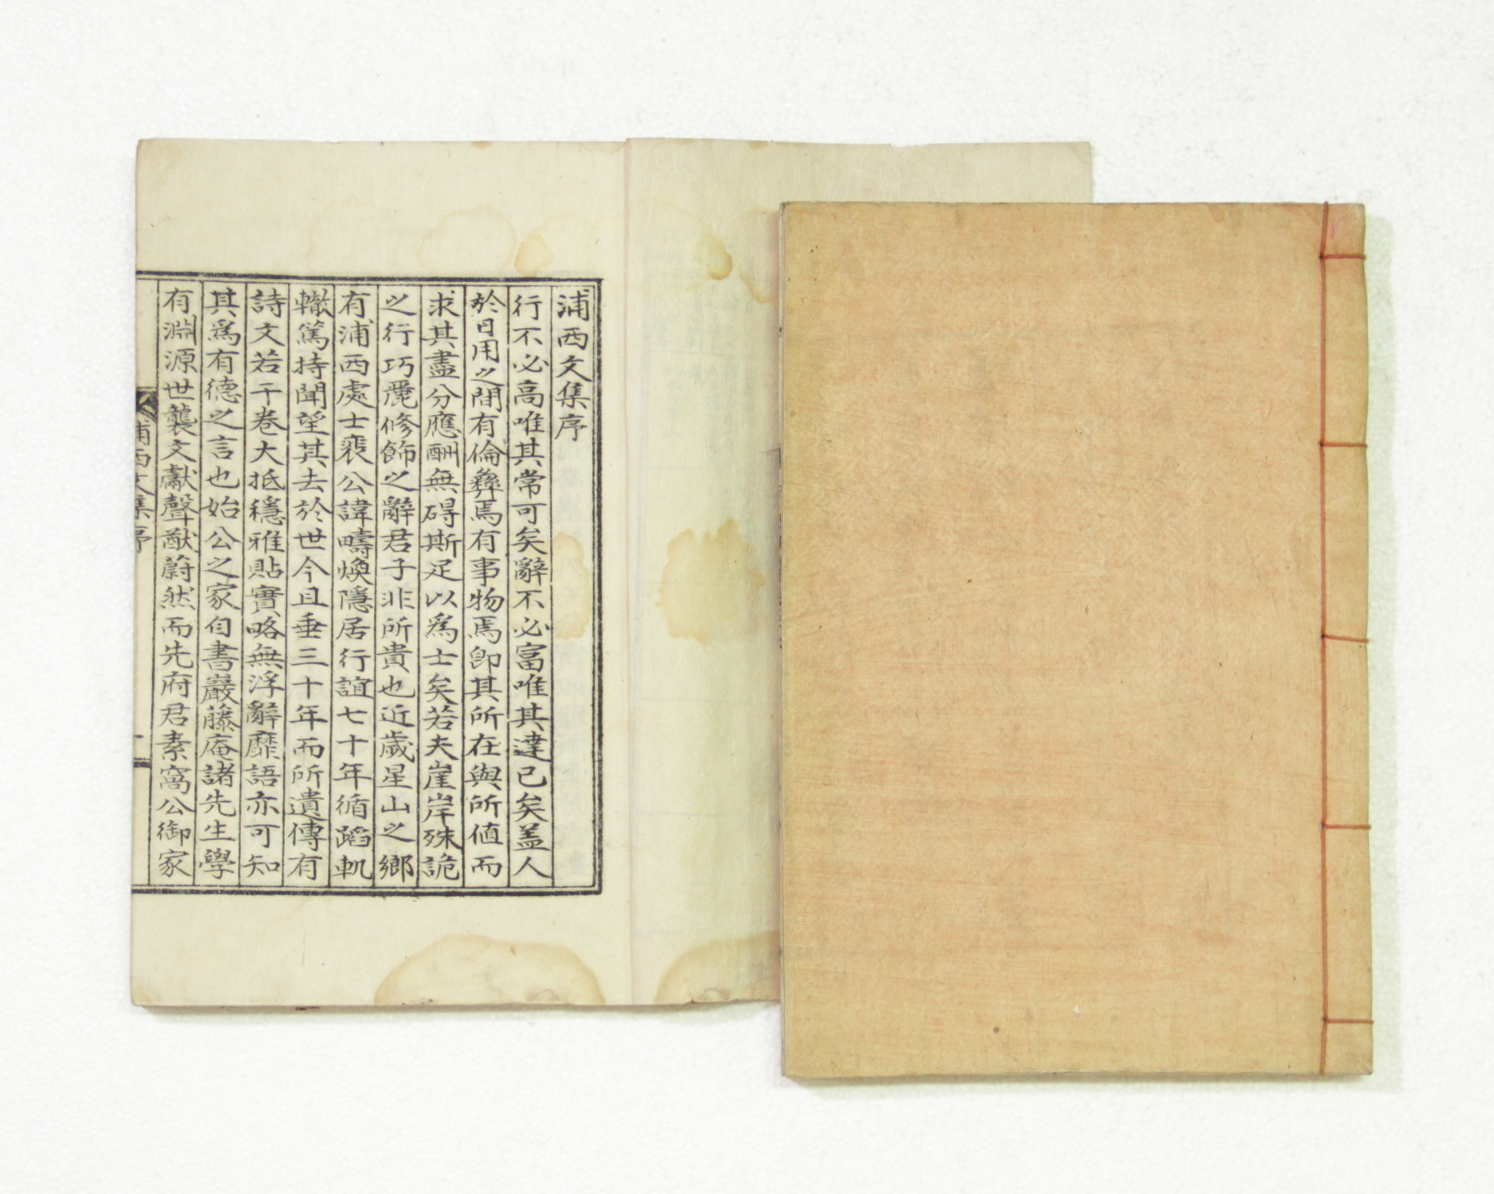 浦西文集序
行不必高唯其常可矣辭不必富唯其達已矣盖人
於日用之間有倫彝焉有事物焉卽其所在與所値而
求其盡分應酬無碍斯足以爲士矣若夫崖岸殊詭
之行巧麗修飾之辭君子非所貴也近歲星山之鄉
有浦西處士裵公諱疇煥隱居行誼七十年循蹈軌
轍篤持聞望其去於世今且垂三十年而所遺傳有
詩文若干卷大抵穩雅貼實略無浮辭靡語亦可知
其爲有德之言也始公之家自書巖藤庵諸先生學
有淵源世襲文獻聲猷蔚然而先府君素窩公御家
浦西文集序